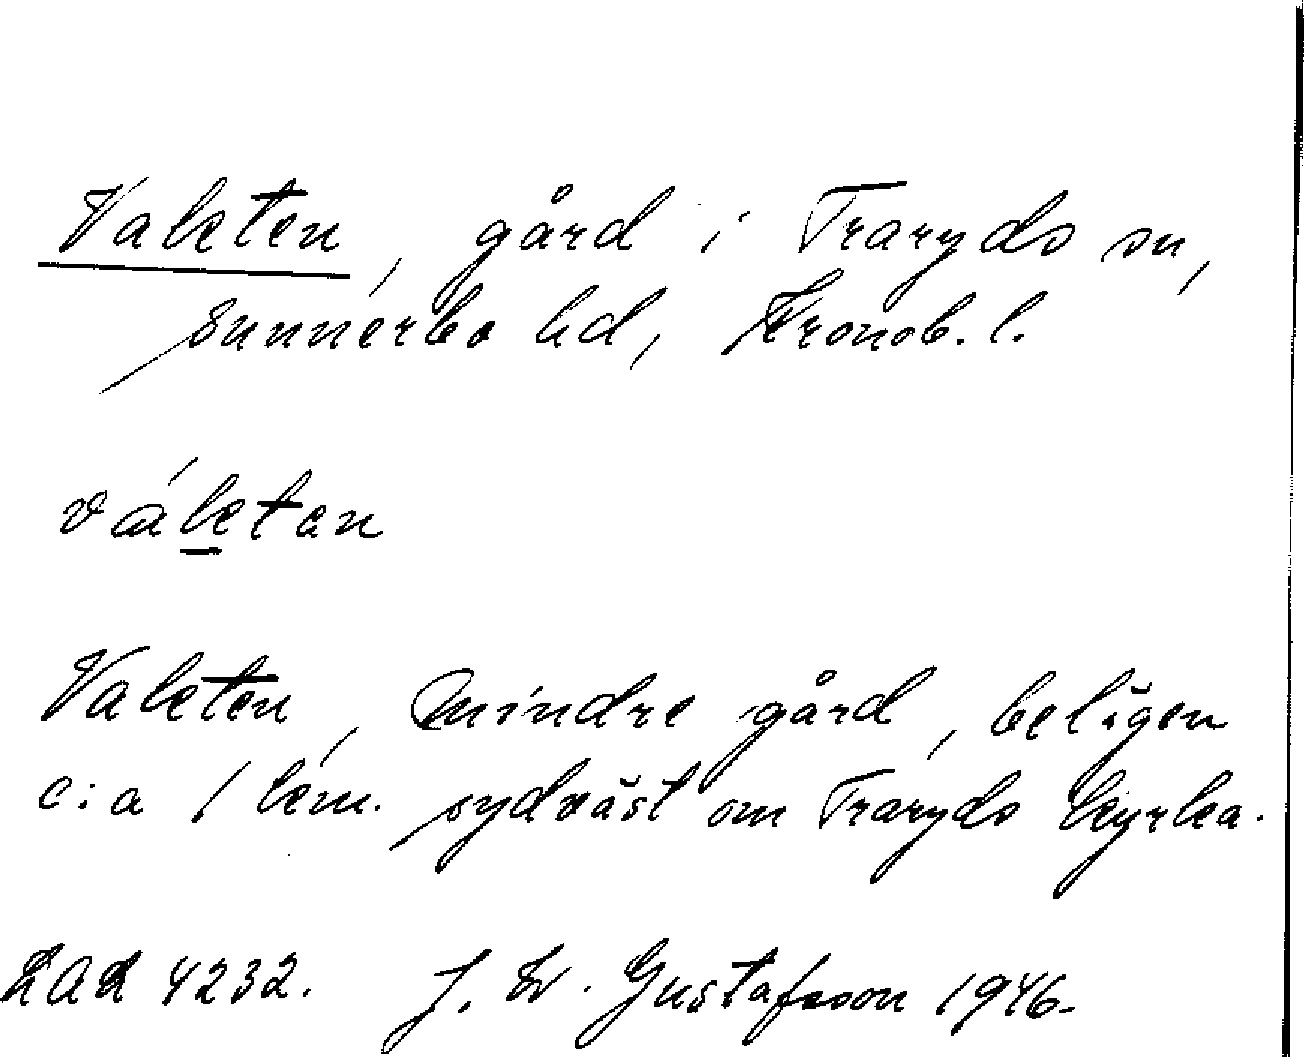 Vakten, gård i Traryds sn,
Sunnerbo hd, Kronob. l.
váktan
Vakten, mindre gård, belägen
c:a 1 km. sydväst om Traryds kyrka.
LAL 4232. J. Gustafsson 1946.